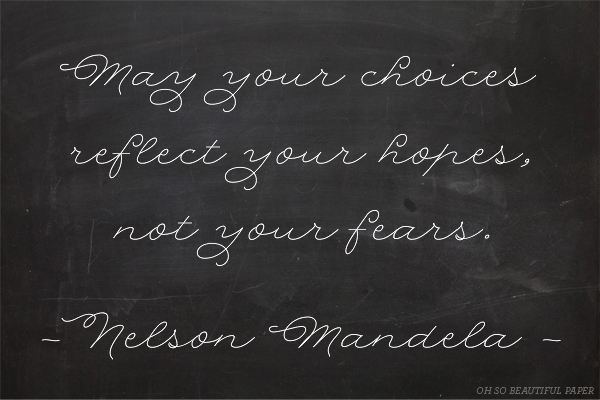 May your choices
reflect your hopes,
not your fears.
- Nelson Mandela -
OH SO BEAUTIFUL PAPER